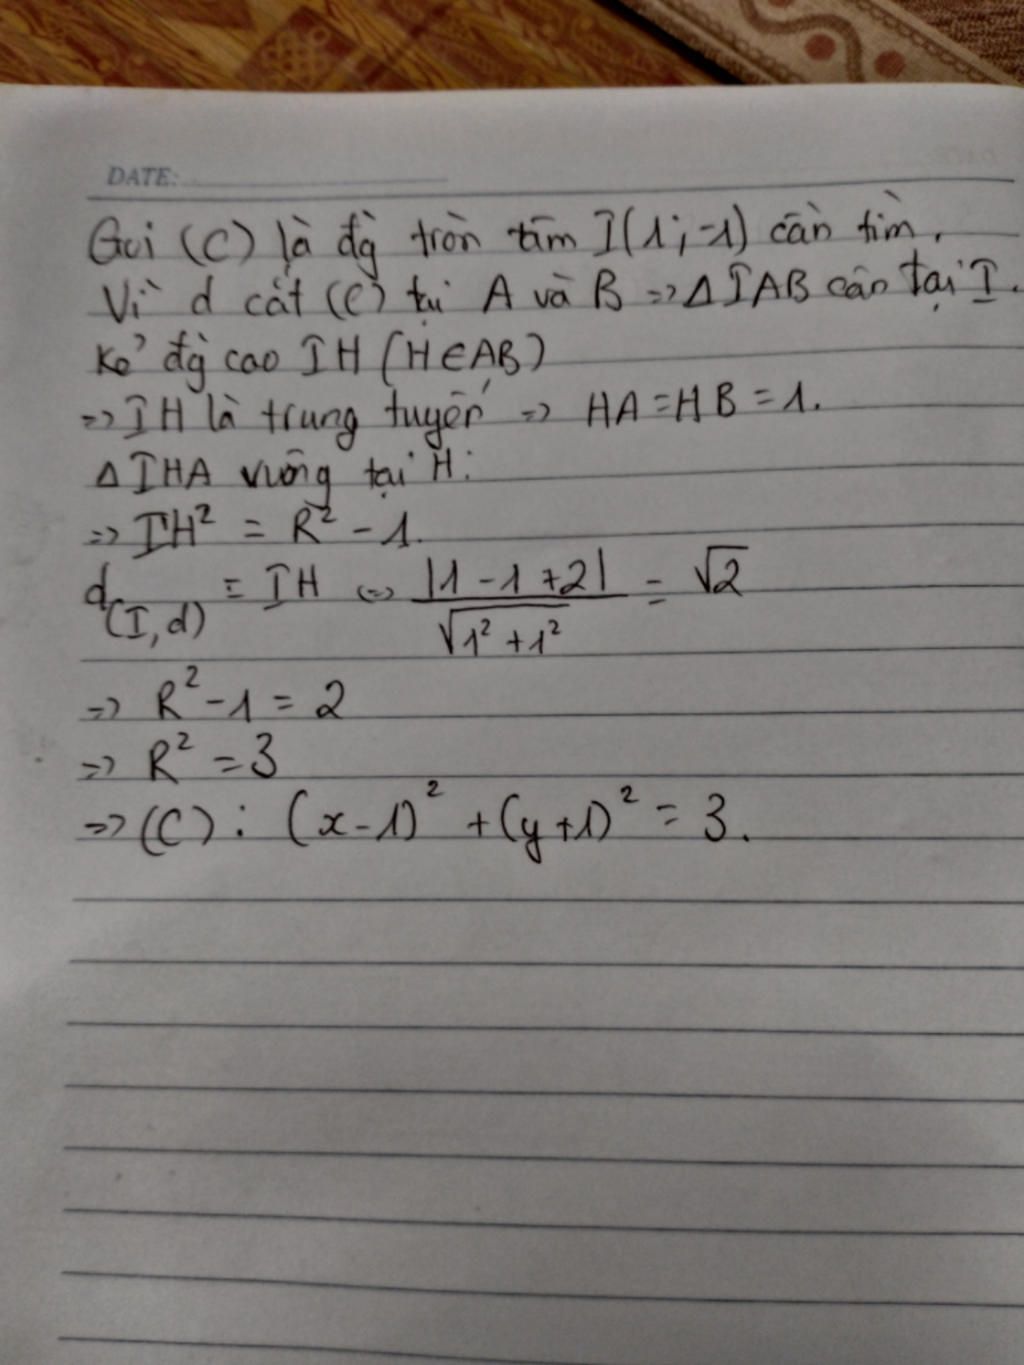 DATE:
Gọi (C) là đg tròn tâm I(1;-1) cần tìm.
Vì d cắt (C) tại A và B => Δ IAB cân tại I.
Kẻ đg cao IH (H∈AB)
=> IH là trung tuyến => HA = HB = 1.
Δ IHA vuông tại H:
=> IH² = R² - 1.
d(I,d) = IH <=> |1 - 1 + 2| / √(1² + 1²) = √2
=> R² - 1 = 2
=> R² = 3
=> (C): (x-1)² + (y+1)² = 3.